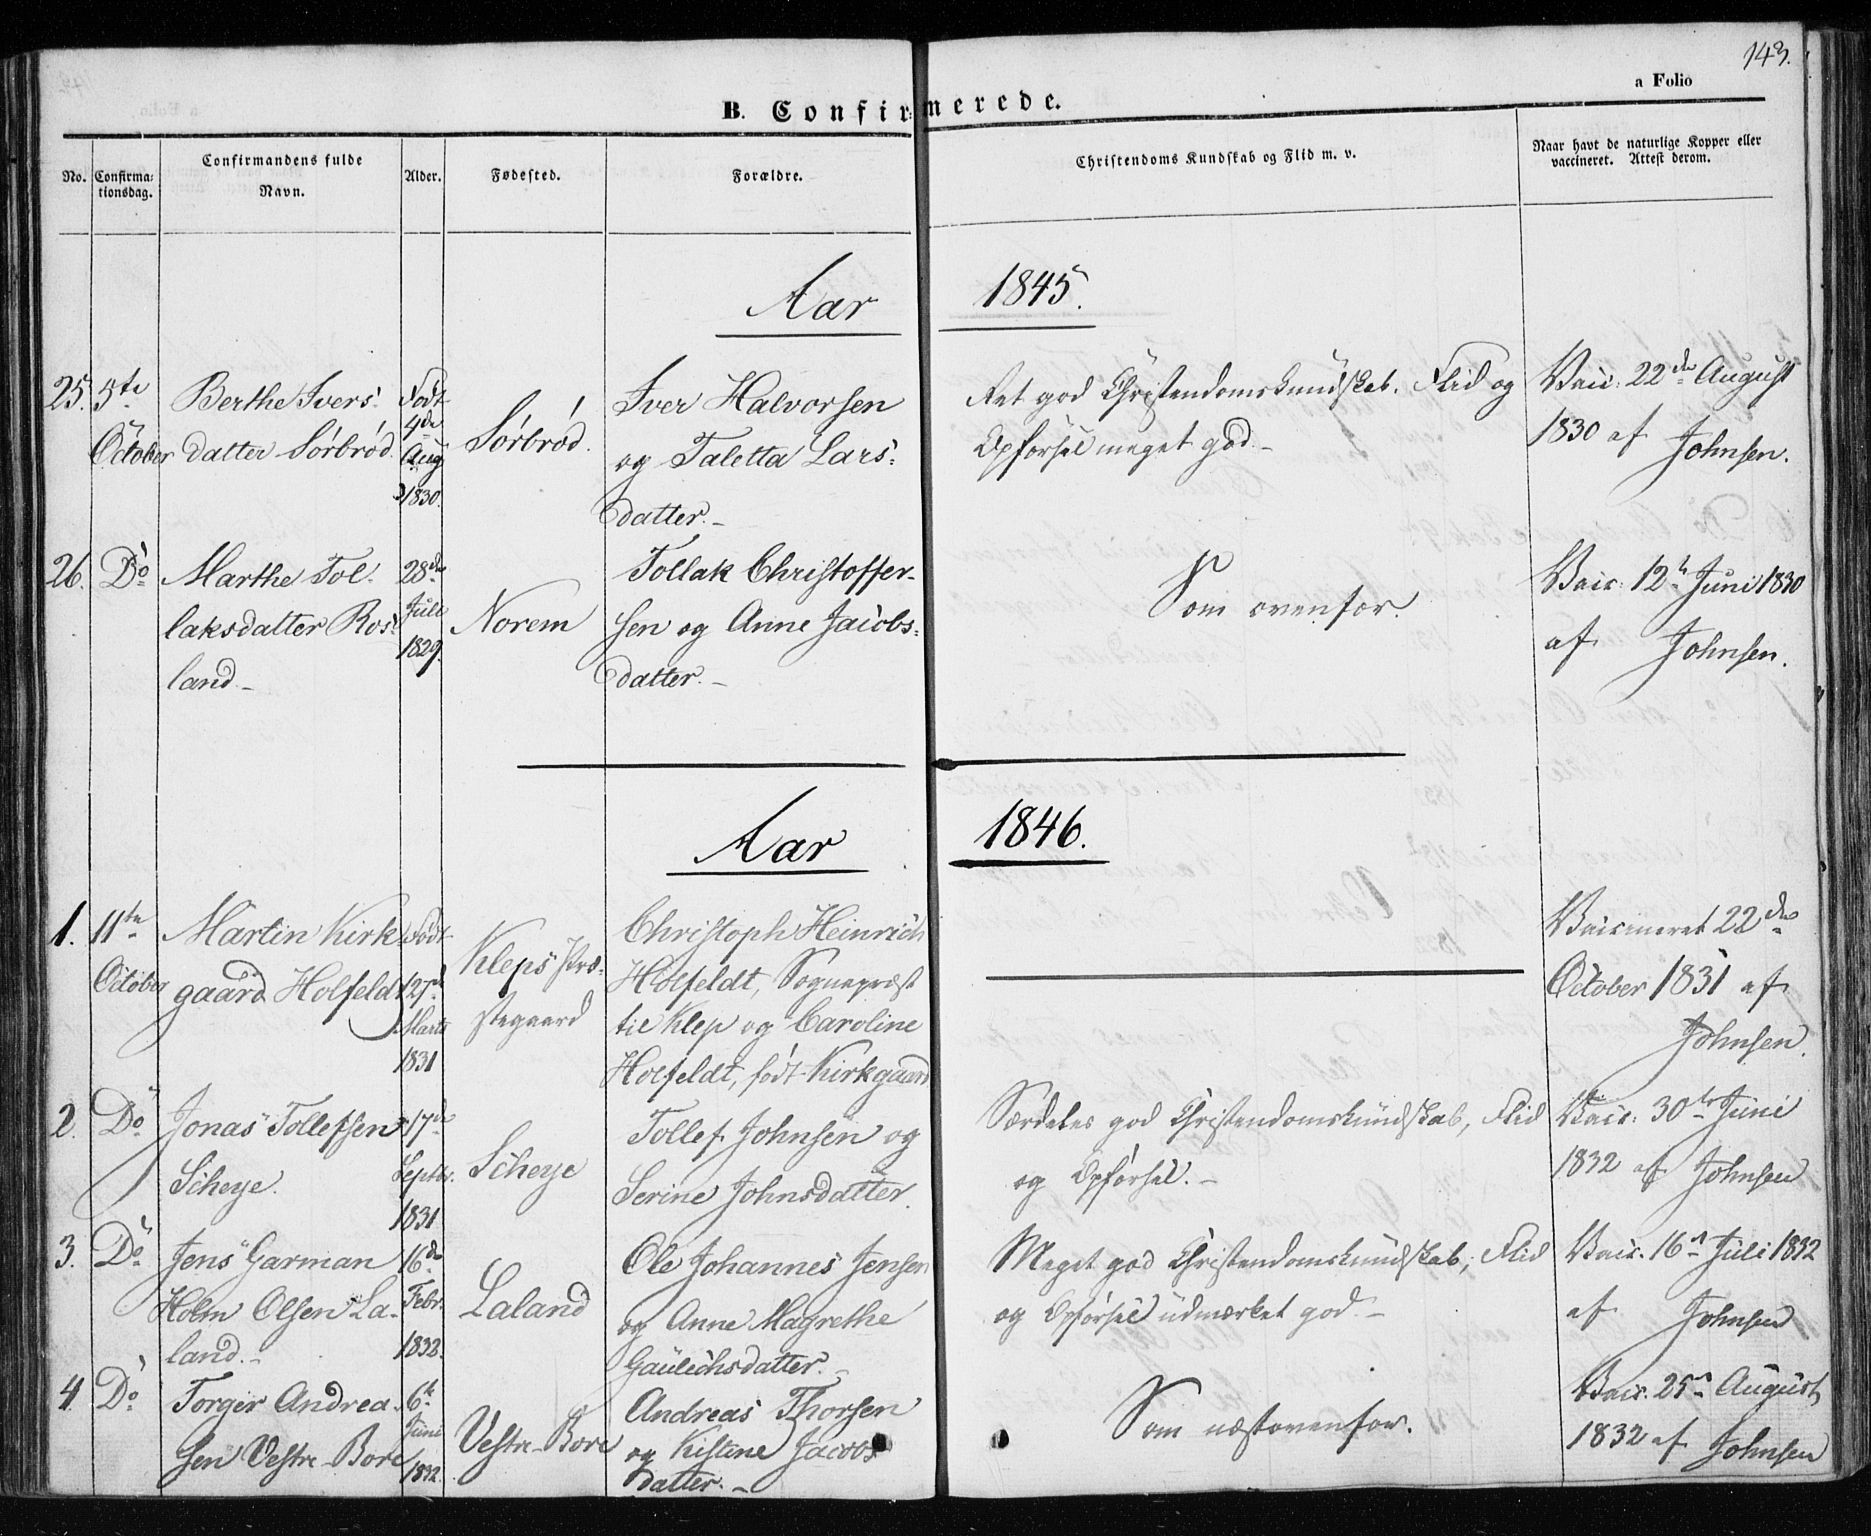 143.
a Folio
B. Confirmerede.
No.
Confirma-
tionsdag.
Confirmandens fulde
Navn.
Alder.
Fødested.
Forældre.
Christendoms Kundskab og Flid m. v.
Naar havt de naturlige Kopper eller
vaccineret. Attest derom.
Aar 1845.
25. 5te
October
Berthe Ivers-
datter Sørbrød
Født
4de
Aug
1830.
Sørbrød.
Iver Halvorsen
og Taletta Lars-
datter. -
Ret god Christendomskundskab. Flid og
Opførsel meget god -
Vacc: 22de August
1830 af
Johnsen.
26. Do
Marthe Tol-
laksdatter Ros-
land -
28de
Juli
1829.
Norem
Tollak Christoffer-
sen og Anne Jacobs-
datter. -
Som ovenfor.
Vacc: 12te Juni 1830
af Johnsen.
Aar 1846.
1. 11te
October
Martin Kirk-
gaard Holfeldt
Født
27de
Marts
1831
Kleps Præ-
stegaard
Christoph Heinrich
Holfeldt, Sognepræst
til Klep og Caroline
Holfeldt, født Kirkgaard
Vaccineret 22de
October 1831 af
Johnsen.
2. Do
Jonas Tollefsen
Scheye.
17de
Septbr.
1831
Scheye
Tollef Johnsen og
Serine Johnsdatter.
Særdeles god Christendomskundskab, Flid
og Opførsel. -
Vacc: 30te Juni
1832 af Johnsen
3. Do
Jens Garman
Holm Olsen La-
land. -
16de
Febr.
1832.
Laland
Ole Johannes Jensen
og Anne Magrethe
Gaulichsdatter. -
Meget god Christendomskundskab, Flid
og Opførsel udmærket god. -
Vacc. 16de Juli 1832
af Johnsen
4. Do
Torger Andrea-
sen Vestre-Bore
6te
Juni
1832.
Vestre-Bore
Andreas Thorsen
og Kistine Jacobs
datter. -
Som næstovenfor.
Vacc. 25de August
1832 af Johnsen